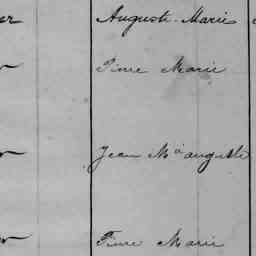 er Auguste Marie
Pierre Marie
Jean Mie auguste
Pierre Marie